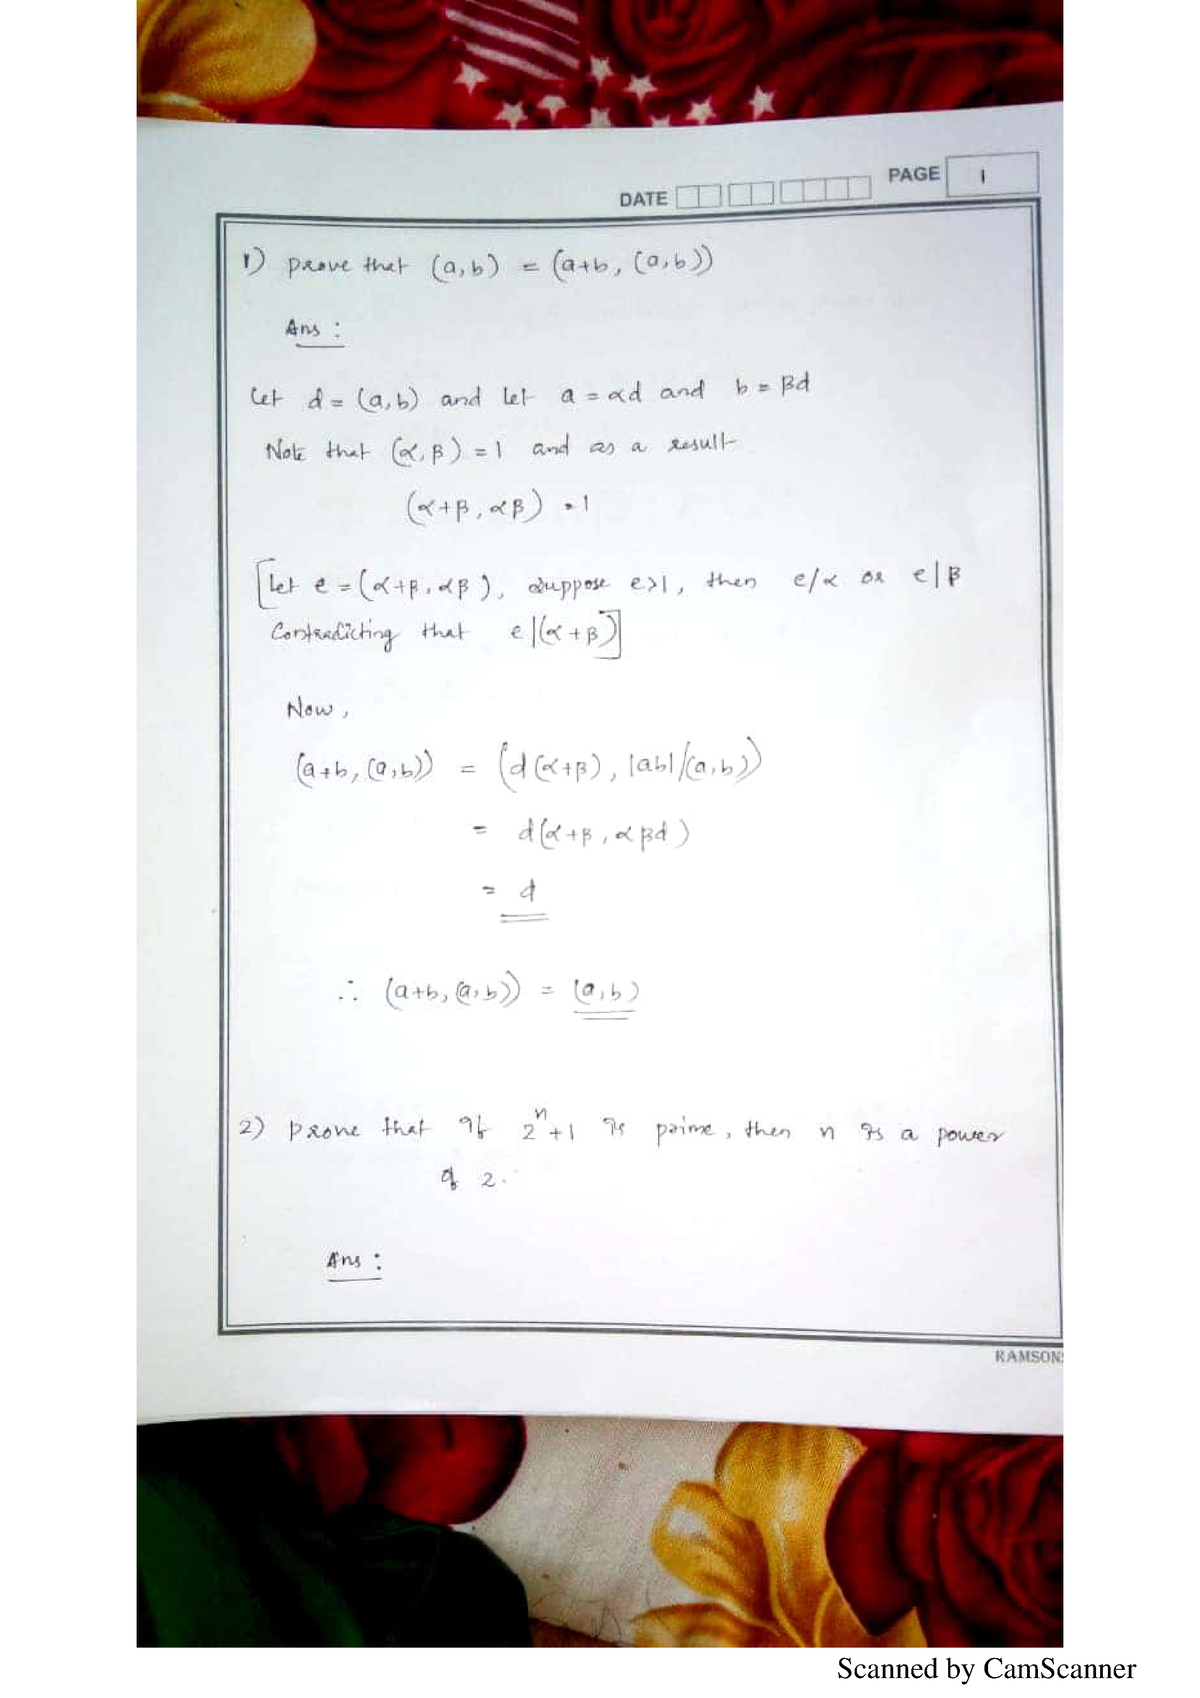 PAGE 1
DATE
1) prove that (a,b) = (a+b, (a,b))
Ans :
Let d = (a,b) and let a = αd and b = βd
Note that (α,β) = 1 and as a result
(α+β, αβ) = 1
[Let e = (α+β, αβ), suppose e>1, then e/α or e|β
Contradicting that e|(α+β)]
Now,
(a+b, (a,b)) = (d(α+β), |ab|/(a,b))
= d(α+β, αβd)
= d
∴ (a+b, (a,b)) = (a,b)
2) prove that if 2ⁿ+1 is prime, then n is a power
of 2.
Ans :
RAMSONS
Scanned by CamScanner